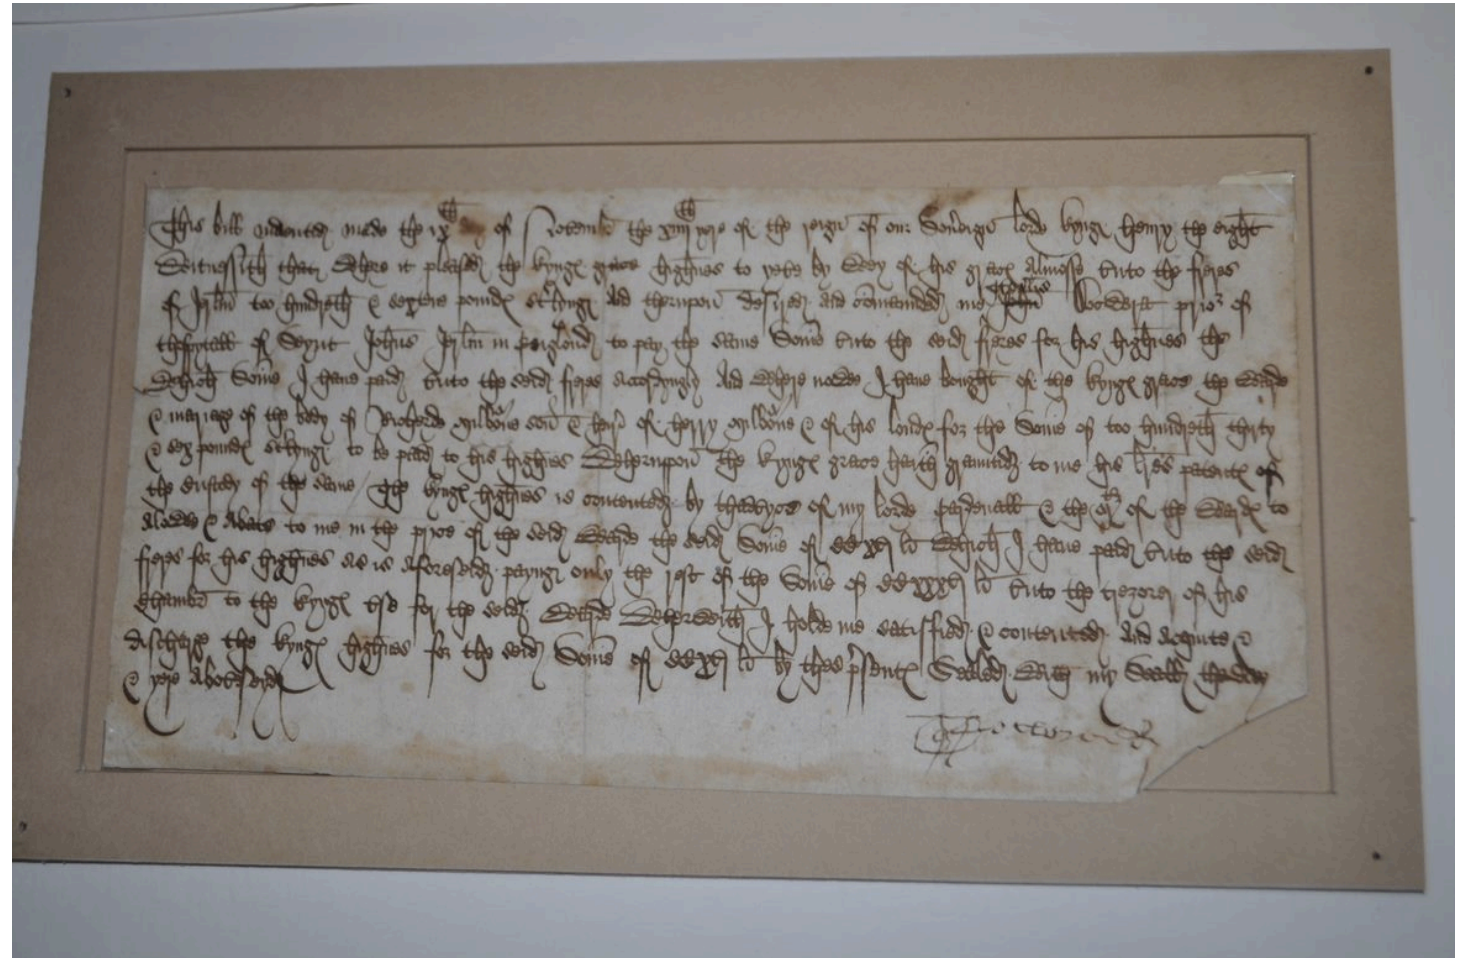 This bill indentid made the ix th day of Novembr the xiiij th yere of the reign of our Soverign lord kyng Henry the eight
Witnessith that where it pleasid the kyngs grace highnes to yeve by Wey of his graces Almosse unto the freres
of Jrlm too hundreth & sextene pounds sterlyng And therupon desired and comaundid me Thomas Docwra prior of
thospytall of Seynt Johns Jrlm in Englond to pay the same Some unto the seid freres for his highnes the
Which Some I have paid unto the seid freres accordyngly And Where nowe I have bought of the kyngs grace the Warde
& mariage of the body of Richard mylborne son & heire of herry mylborne & of his londs for the Some of too hundreth thirty
& sex pounds sterlyng to be paid to his highnes Wherupon the kyngs grace hath grauntid to me his lres patents of
the custody of the same / The kyngs highnes is contentid by thadvyce of my lorde Cardenall & the of the Wards to
alowe & abate to me in the price of the seid Warde the seid Some of ccxvj li Which I have paid unto the seid
freres for his highnes as is aforeseid payng only the rest of the Some of ccxxxvj li unto the trezorer of his
chambr to the kyngs use for the seid Warde Wherwith I holde me satisfied & contentid And acquite &
discharge the kyngs highnes for the seid Some of ccxvj li by thes psents Sealed With my Seall the day
& yere abovesyd